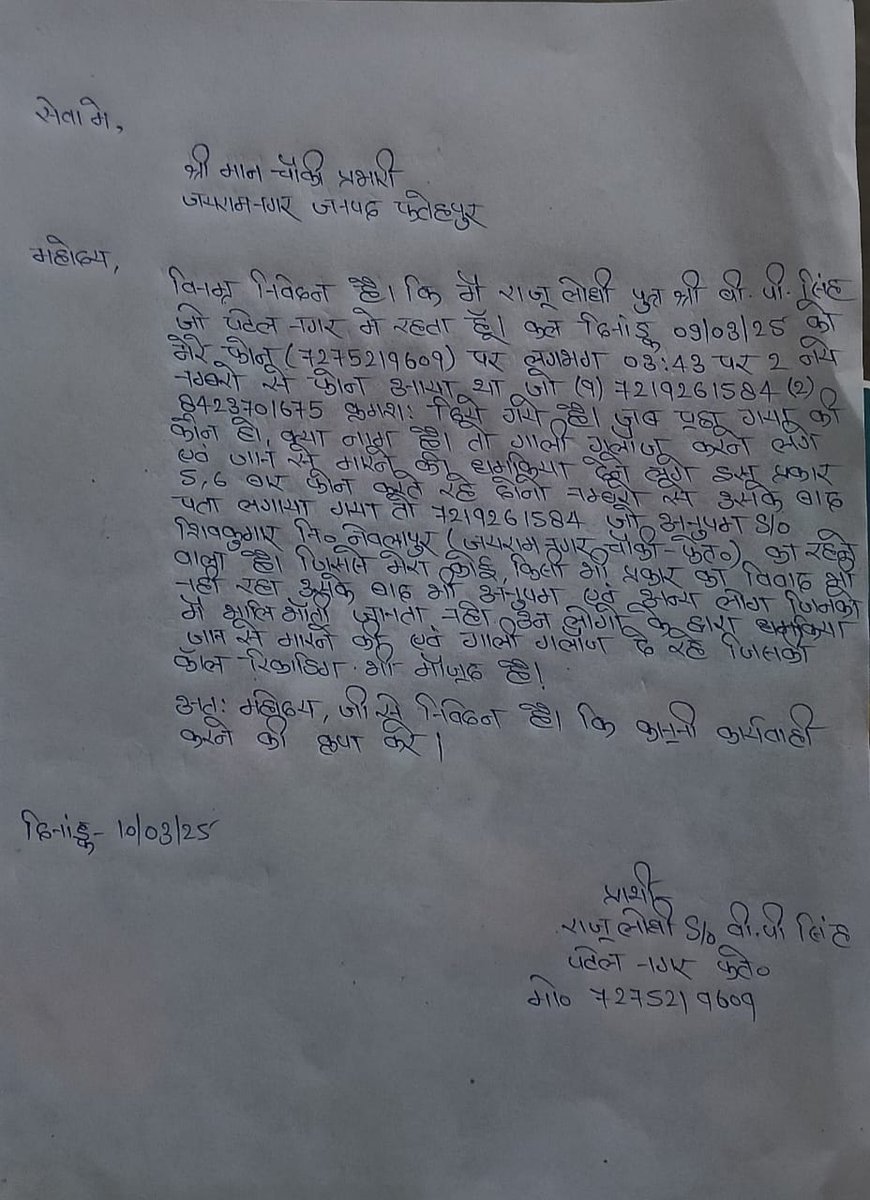 सेवा मे,
श्री मान चौकी प्रभारी
जयराम नगर जनपद फतेहपुर
महोदय,
विनम्र निवेदन है। कि मै राजू लोधी पुत्र श्री वी. पी. सिंह
जो पटेल नगर मे रहता हूँ। कल दिनांङ्क 09/03/25 को
मेरे फोन (7275219609) पर लगभग 03:43 पर 2 नये
नम्बरो से फोन आया था जो (१) 7219261584 (2)
8423701675 क्रमश: दिये गये है। जब पूछा गया की
कौन हो, क्या नाम है। तो गाली गलौज करने लगे
एवं जान से मारने की धमकिया देने लगे इस प्रकार
5,6 बार फोन करते रहे दोनो नम्बरो से उसके बाद
पता लगाया गया तो 7219261584 जो अनुपम S/o
शिवकुमार नि० नेवलापुर (जयराम नगर चौकी-फते०) का रहने
वाला है। जिससे मेरा कोई, किसी भी प्रकार का विवाद भी
नही रहा उसके बाद भी अनुपम एवं अन्य लोग जिनको
मै भालि भाँती जानता नही उन लोगो के द्वारा धमकिया
जान से मारने की एवं गाली गलौज दे रहे जिसकी
कॉल रिकाडिंग भी मौजूद है।
अत: महोदय, जी से निवेदन है। कि कानूनी कार्यवाही
करने की कृपा करे।
दिनांङ्क- 10/03/25
प्रार्थी
राजू लोधी S/o वी.पी सिंह
पटेल नगर फते०
मो० 7275219609